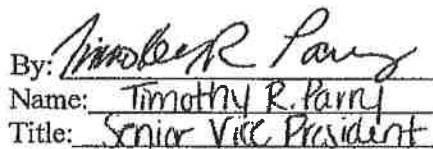 By: Timothy R Parry
Name: Timothy R. Parry
Title: Senior Vice President